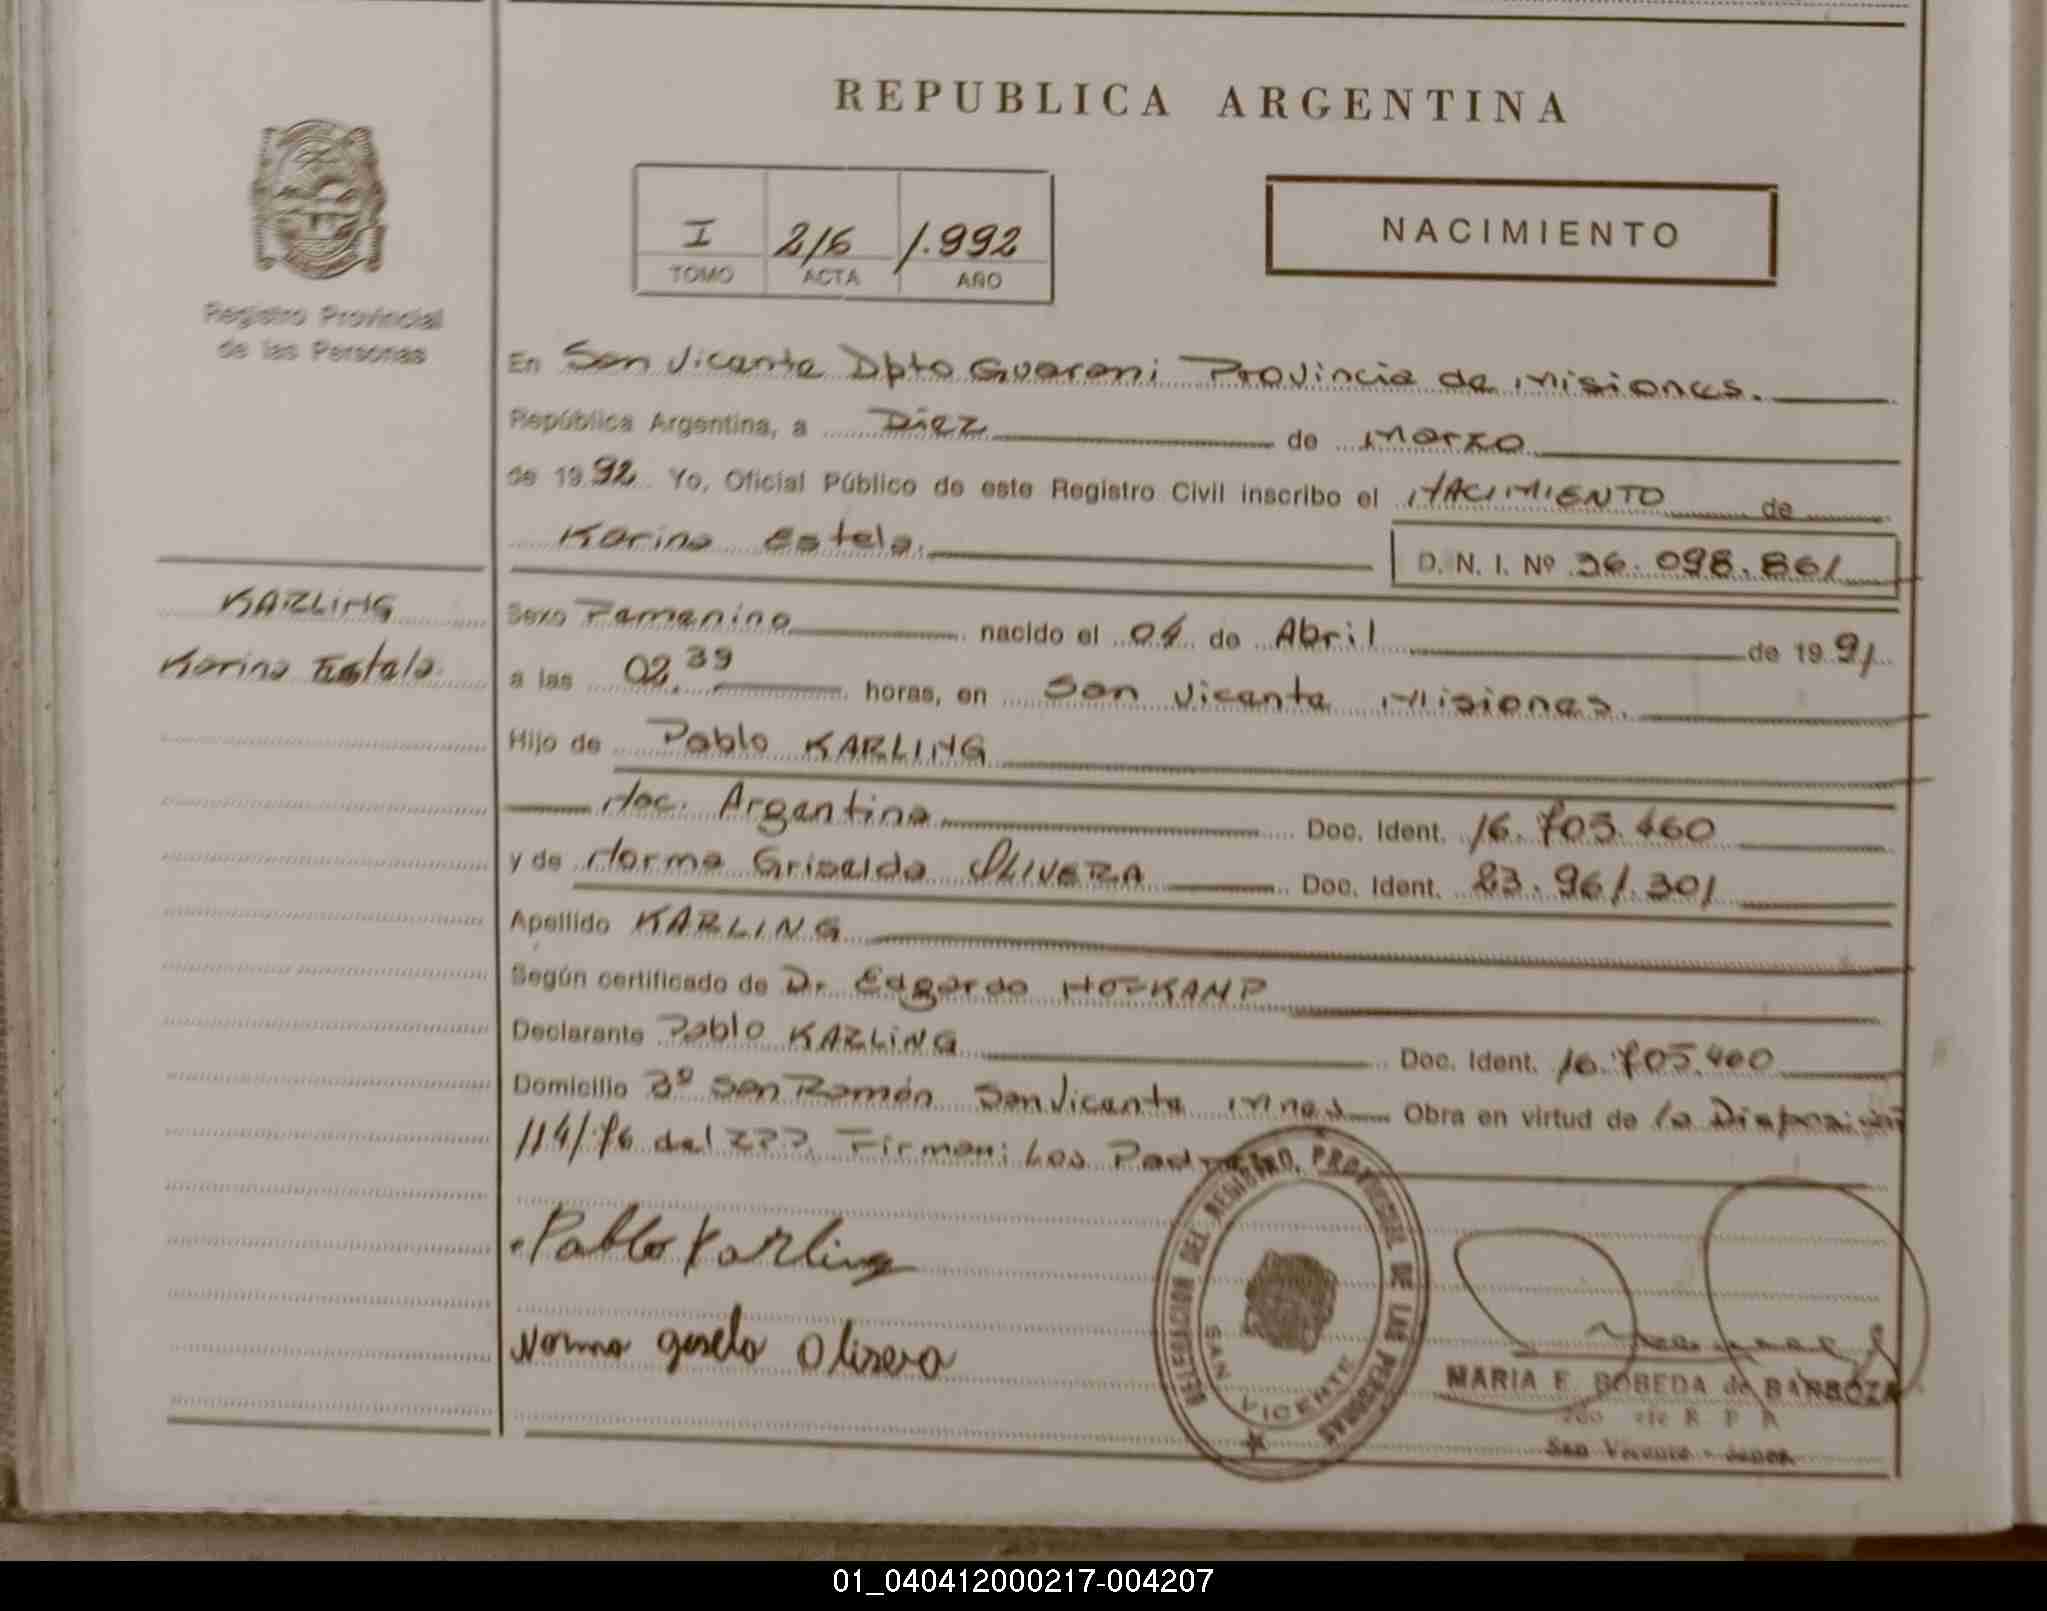 REPUBLICA ARGENTINA
I 216 1.992
TOMO ACTA AÑO
NACIMIENTO
Registro Provincial
de las Personas
En San Vicente Dpto Guarani Provincia de Misiones.
República Argentina, a Diez de Marzo
de 1992 Yo, Oficial Público de este Registro Civil inscribo el NACIMIENTO de
Karina Estela.
D. N. I. Nº 36.098.861
KARLING
Karina Estela.
Sexo Femenino nacido el 04 de Abril de 1991
a las 02,39 horas, en San Vicente Misiones.
Hijo de Pablo KARLING
Nac. Argentina Doc. Ident. 16.705.460
y de Norma Griselda OLIVERA Doc. Ident. 23.961.301
Apellido KARLING
Según certificado de Dr. Edgardo HOFKAMP
Declarante Pablo KARLING Doc. Ident. 16.705.460
Domicilio Bº San Ramón San Vicente Mnes Obra en virtud de la Disposición
114/76 del RPP, Firman: Los Padres
Pablo Karling
Norma gisela Olivera
DELEGACION DEL REGISTRO PROVINCIAL DE LAS PERSONAS
SAN VICENTE
MARIA E. BOBEDA de BARBOZA
R P P
San Vicente -
01_040412000217-004207